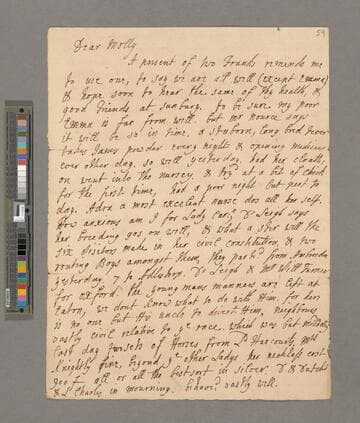 59
Dear Molly
A present of two Franks reminds me
to use one, to say we are all well (except Emma)
& hope soon to hear the same of thy health, &
good friends at Sunbury. to be sure my poor
Emma is far from well. but mr nource says
it will be so in time, a stuborn, long bred Fever
takes James powder every night & opening
ever other day. so well yesterday, had her cloaths
on went into the nursery, & try'd at a bit of chick
for the first time, had a poor night but pret to
day. Adora a most excelent nurse dos all her self.
How anxious am I for Lady Car; Dr Leigh says
her breeding gos on well, & what a stir will the
six visitors made in her civil constitution, & two
routing Boys amongst them, they partd from
yesterday, 7 to Adlestrop. Dr Leigh & Mr Will Turner
for oxford. the young mans manners are left at
Eaton, we dont know what to do with Him. for dear
is no one but His uncle to divert Him,
vastly civil relative to ye race. which was but midling
last day two sets of Horses from Ld Harcourt, Mrs
Knightly fine, beyond ye other Ladys her neckless cost
all or all the best sort in silver. D & Dutchs
& Ld Charles in mourning. behaved vastly well.